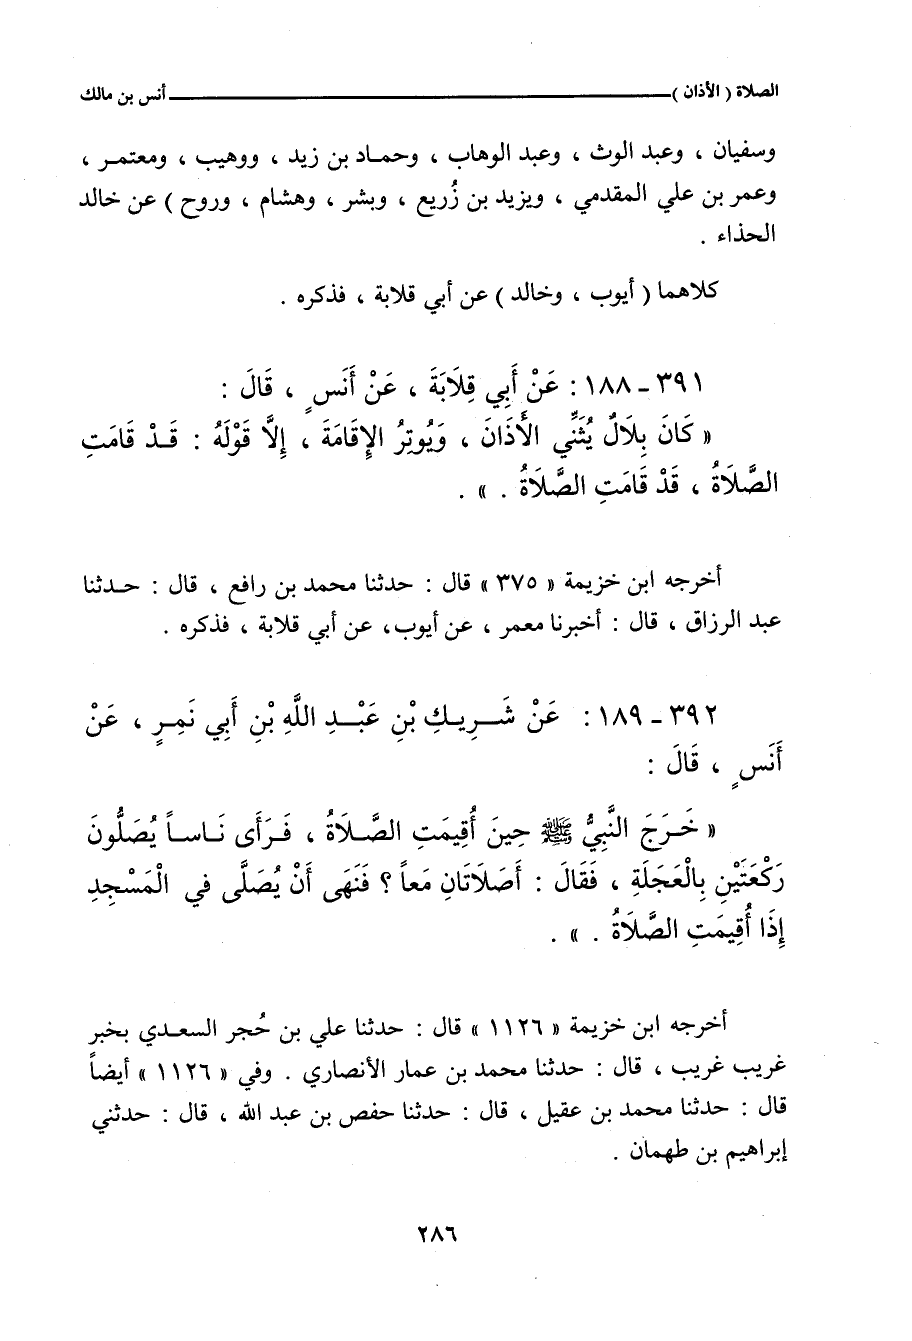 الصلاة ( الأذان ) ـــــــــــــــــ أنس بن مالك
وسفيان ، وعبد الوث ، وعبد الوهاب ، وحماد بن زيد ، ووهيب ، ومعتمر ،
وعمر بن علي المقدمي ، ويزيد بن زُريع ، وبشر ، وهشام ، وروح ) عن خالد
الحذاء .
كلاهما ( أيوب ، وخالد ) عن أبي قلابة ، فذكره .
٣٩١ - ١٨٨ : عَنْ أَبِي قِلَابَةَ ، عَنْ أَنَسٍ ، قَالَ :
« كَانَ بِلَالٌ يُثَنِّي الأَذَانَ ، وَيُوتِرُ الإِقَامَةَ ، إِلَّا قَوْلَهُ : قَـدْ قَامَتِ
الصَّلَاةُ ، قَدْ قَامَتِ الصَّلَاةُ . » .
أخرجه ابن خزيمة « ٣٧٥ » قال : حدثنا محمد بن رافع ، قال : حـدثنا
عبد الرزاق ، قال : أخبرنا معمر ، عن أيوب، عن أبي قلابة ، فذكره .
٣٩٢ - ١٨٩ : عَنْ شَـرِيـكِ بْنِ عَبْـدِ اللَّهِ بْنِ أَبِي نَمِـرٍ ، عَنْ
أَنَسٍ ، قَالَ :
« خَـرَجَ النَّبِيُّ ﷺ حِينَ أُقِيمَتِ الصَّـلَاةُ ، فَـرَأَى نَـاسـاً يُصَلُّونَ
رَكْعَتَيْنِ بِالْعَجَلَةِ ، فَقَالَ : أَصَلَاتَانِ مَعاً ؟ فَنَهَى أَنْ يُصَلَّى فِي الْمَسْجِدِ
إِذَا أُقِيمَتِ الصَّلَاةُ . » .
أخرجه ابن خزيمة « ١١٢٦ » قال : حدثنا علي بن حُجر السعـدي بخبر
غريب غريب ، قال : حدثنا محمد بن عمار الأنصاري . وفي « ١١٢٦ » أيضاً
قال : حدثنا محمد بن عقيل ، قال : حدثنا حفص بن عبد الله ، قال : حدثني
إبراهيم بن طهمان .
٢٨٦